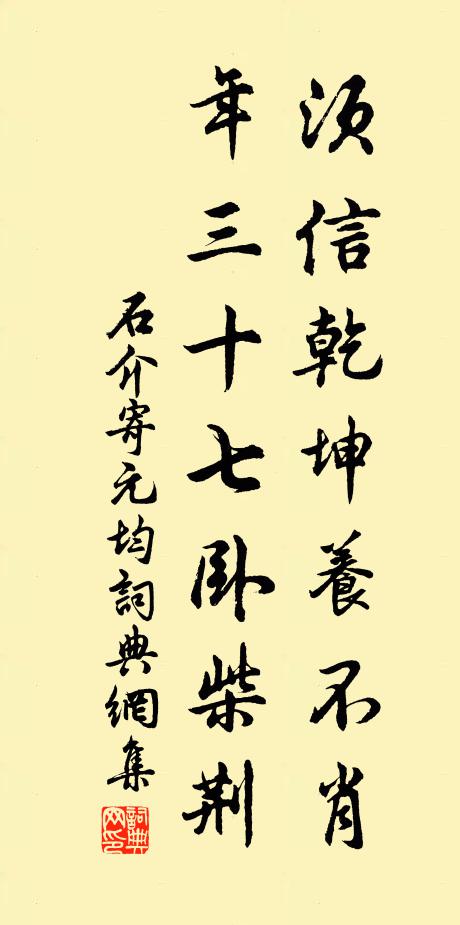 須信乾坤養不肖
年三十七臥柴荆
石介寄元均詞典網集
詞典
网印